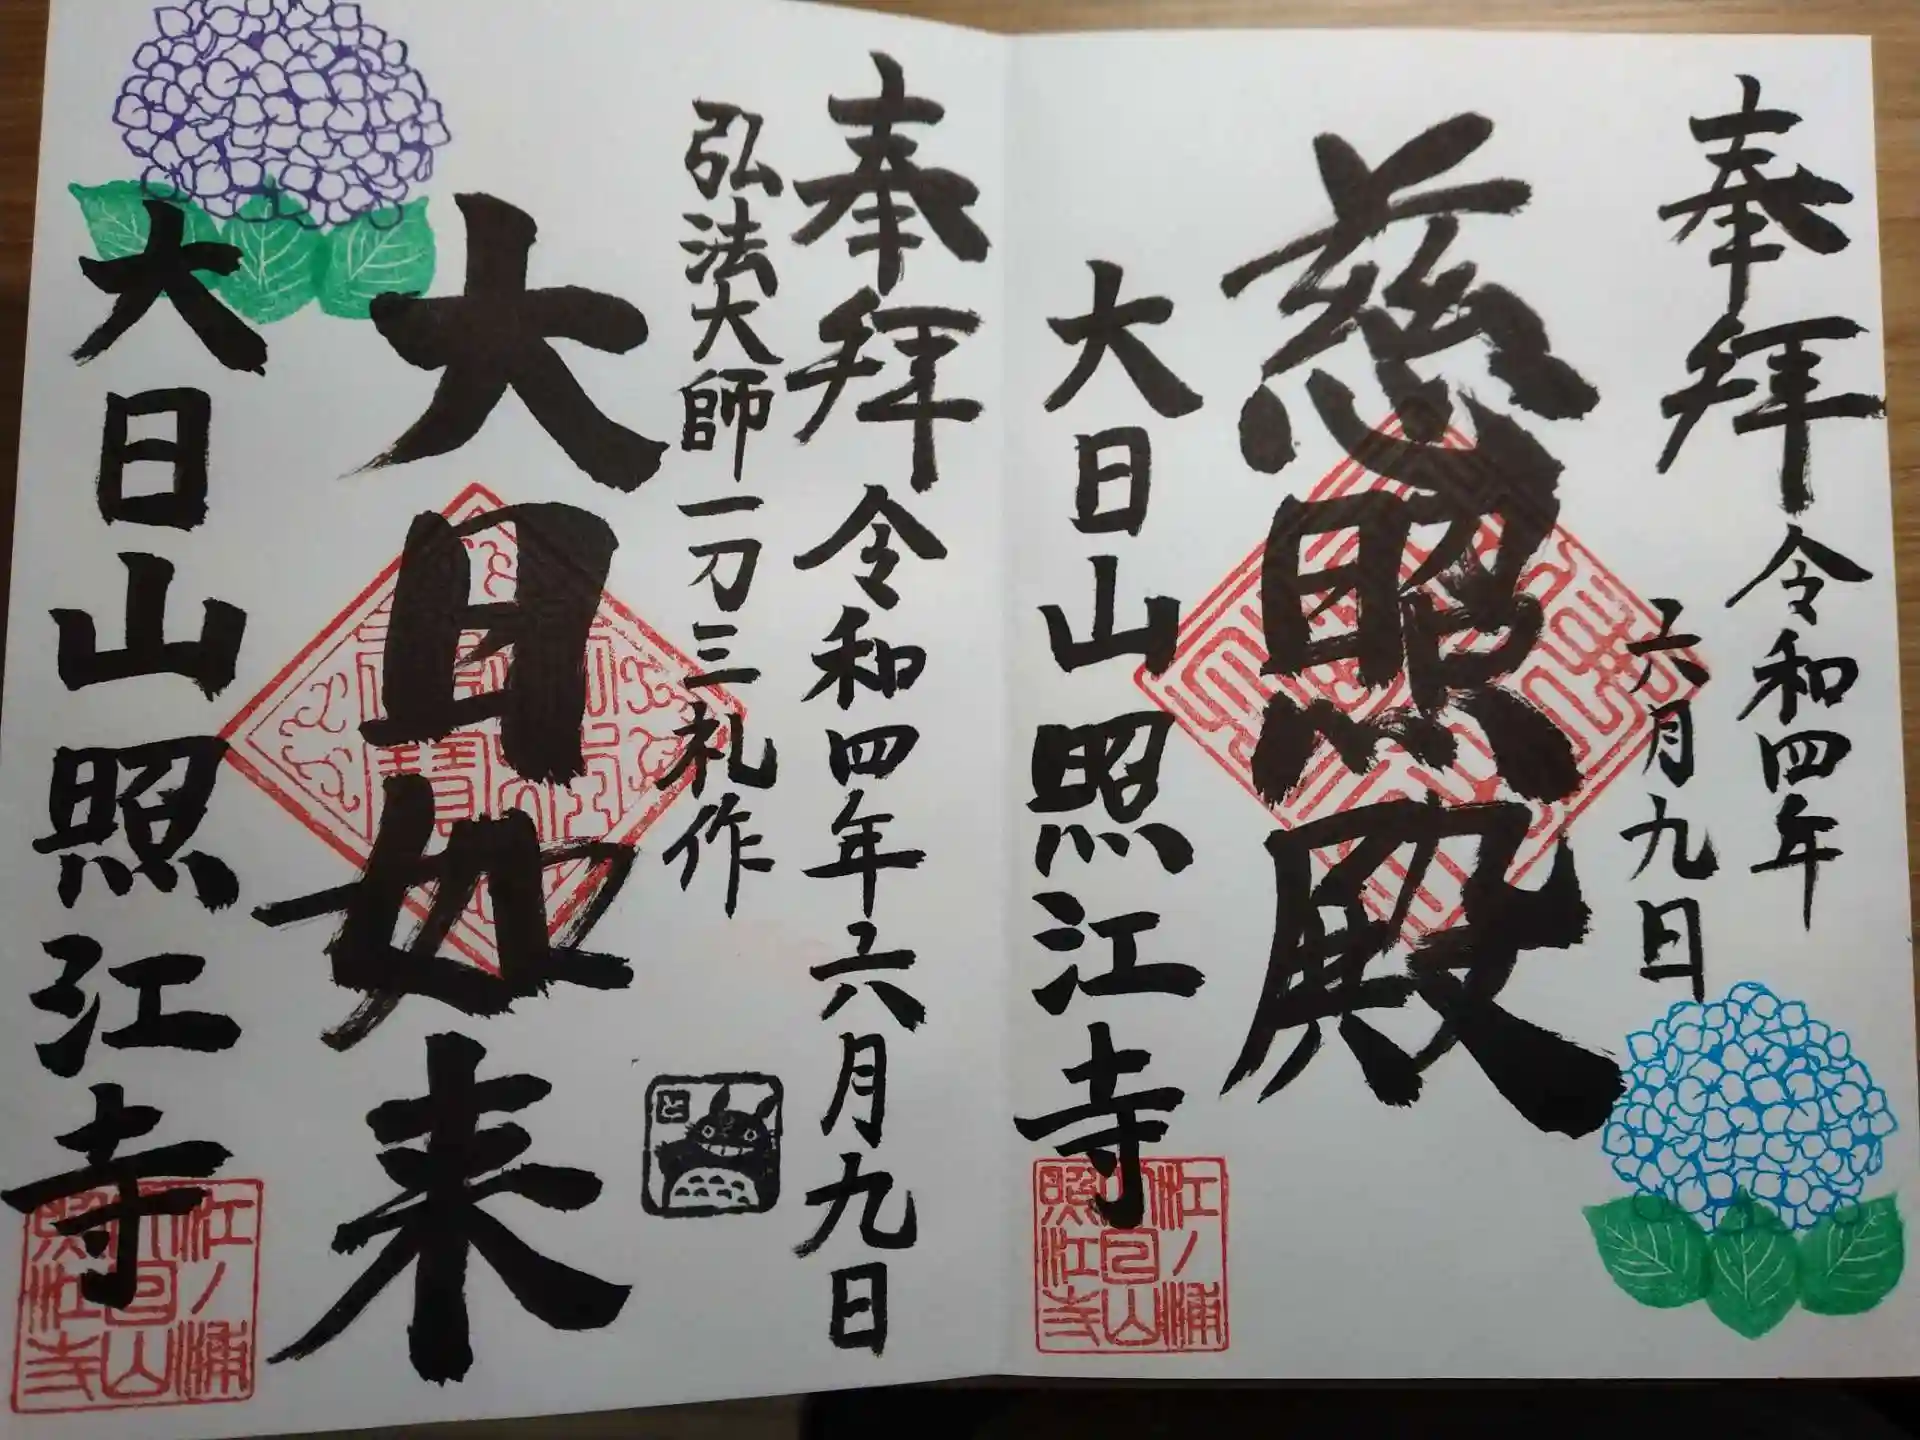 奉拝
令和四年
六月九日
慈照殿
大日山照江寺
江ノ浦
大日山
照江寺
奉拝 令和四年六月九日
弘法大師一刀三礼作
と
大日如来
大日山照江寺
江ノ浦
大日山
照江寺